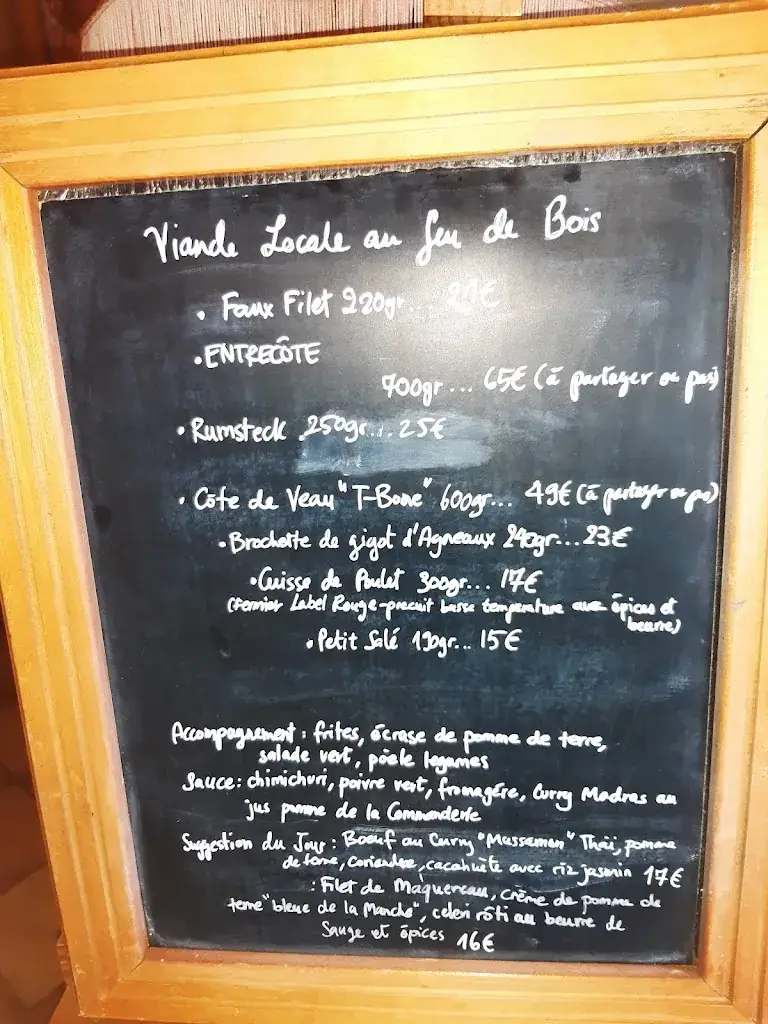 Viande Locale au feu de Bois
• Faux Filet 220gr...
• ENTRECÔTE
700gr... 65€ (à partager ou pas)
• Rumsteck 250gr... 25€
• Côte de Veau "T-Bone" 600gr... 49€ (à partager ou pas)
• Brochette de gigot d'Agneaux 240gr... 23€
• Cuisse de Poulet 300gr... 17€
(fermier Label Rouge - precuit basse temperature aux épices et
beurre)
• Petit Salé 190gr... 15€
Accompagnement : frites, écrase de pomme de terre,
salade vert, poêle legumes
Sauce : chimichuri, poivre vert, fromagére, Curry Madras au
jus pomme de la Commanderie
Suggestion du Jour : Boeuf au Curry "Massaman" Thaï, pomme
de terre, Coriandre, cacahuète avec riz jasmin 17€
: Filet de Maquereau, Crème de pomme de
terre "bleue de la Manche", celeri rôti au beurre de
Sauge et épices 16€